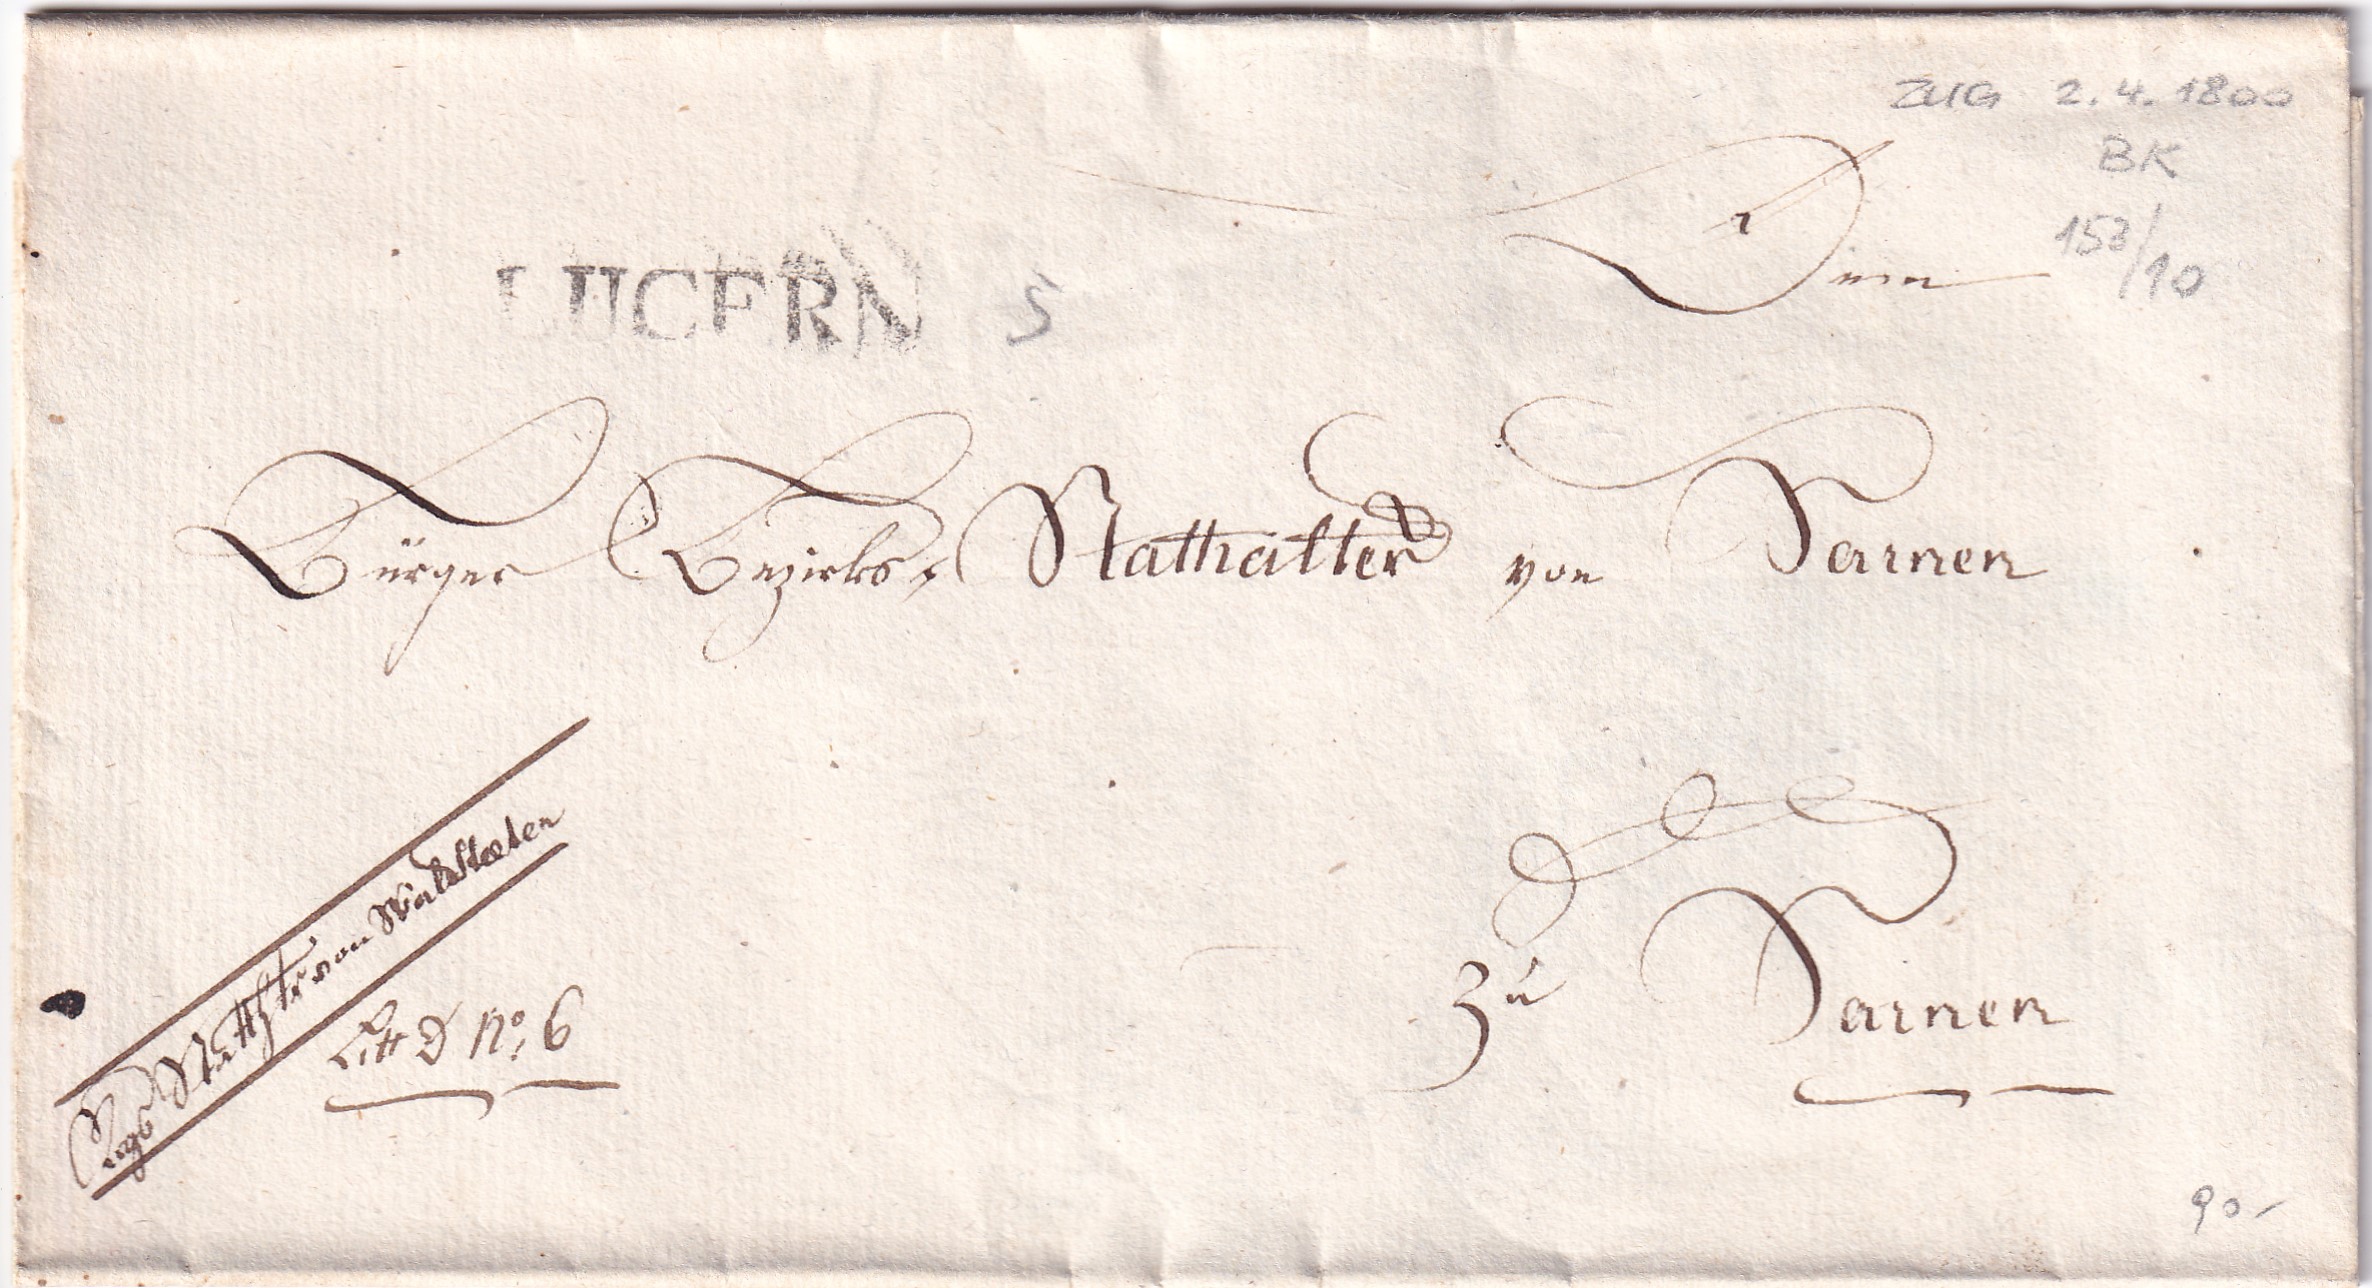 ZUG 2.4.1800
BK
153/10
Dem
LUCERN 5
Bürger Bezirks- Stathalter von Sarnen
Zu Sarnen
Regs Statthltr von Waldstaeten
Litt D No. 6
90-